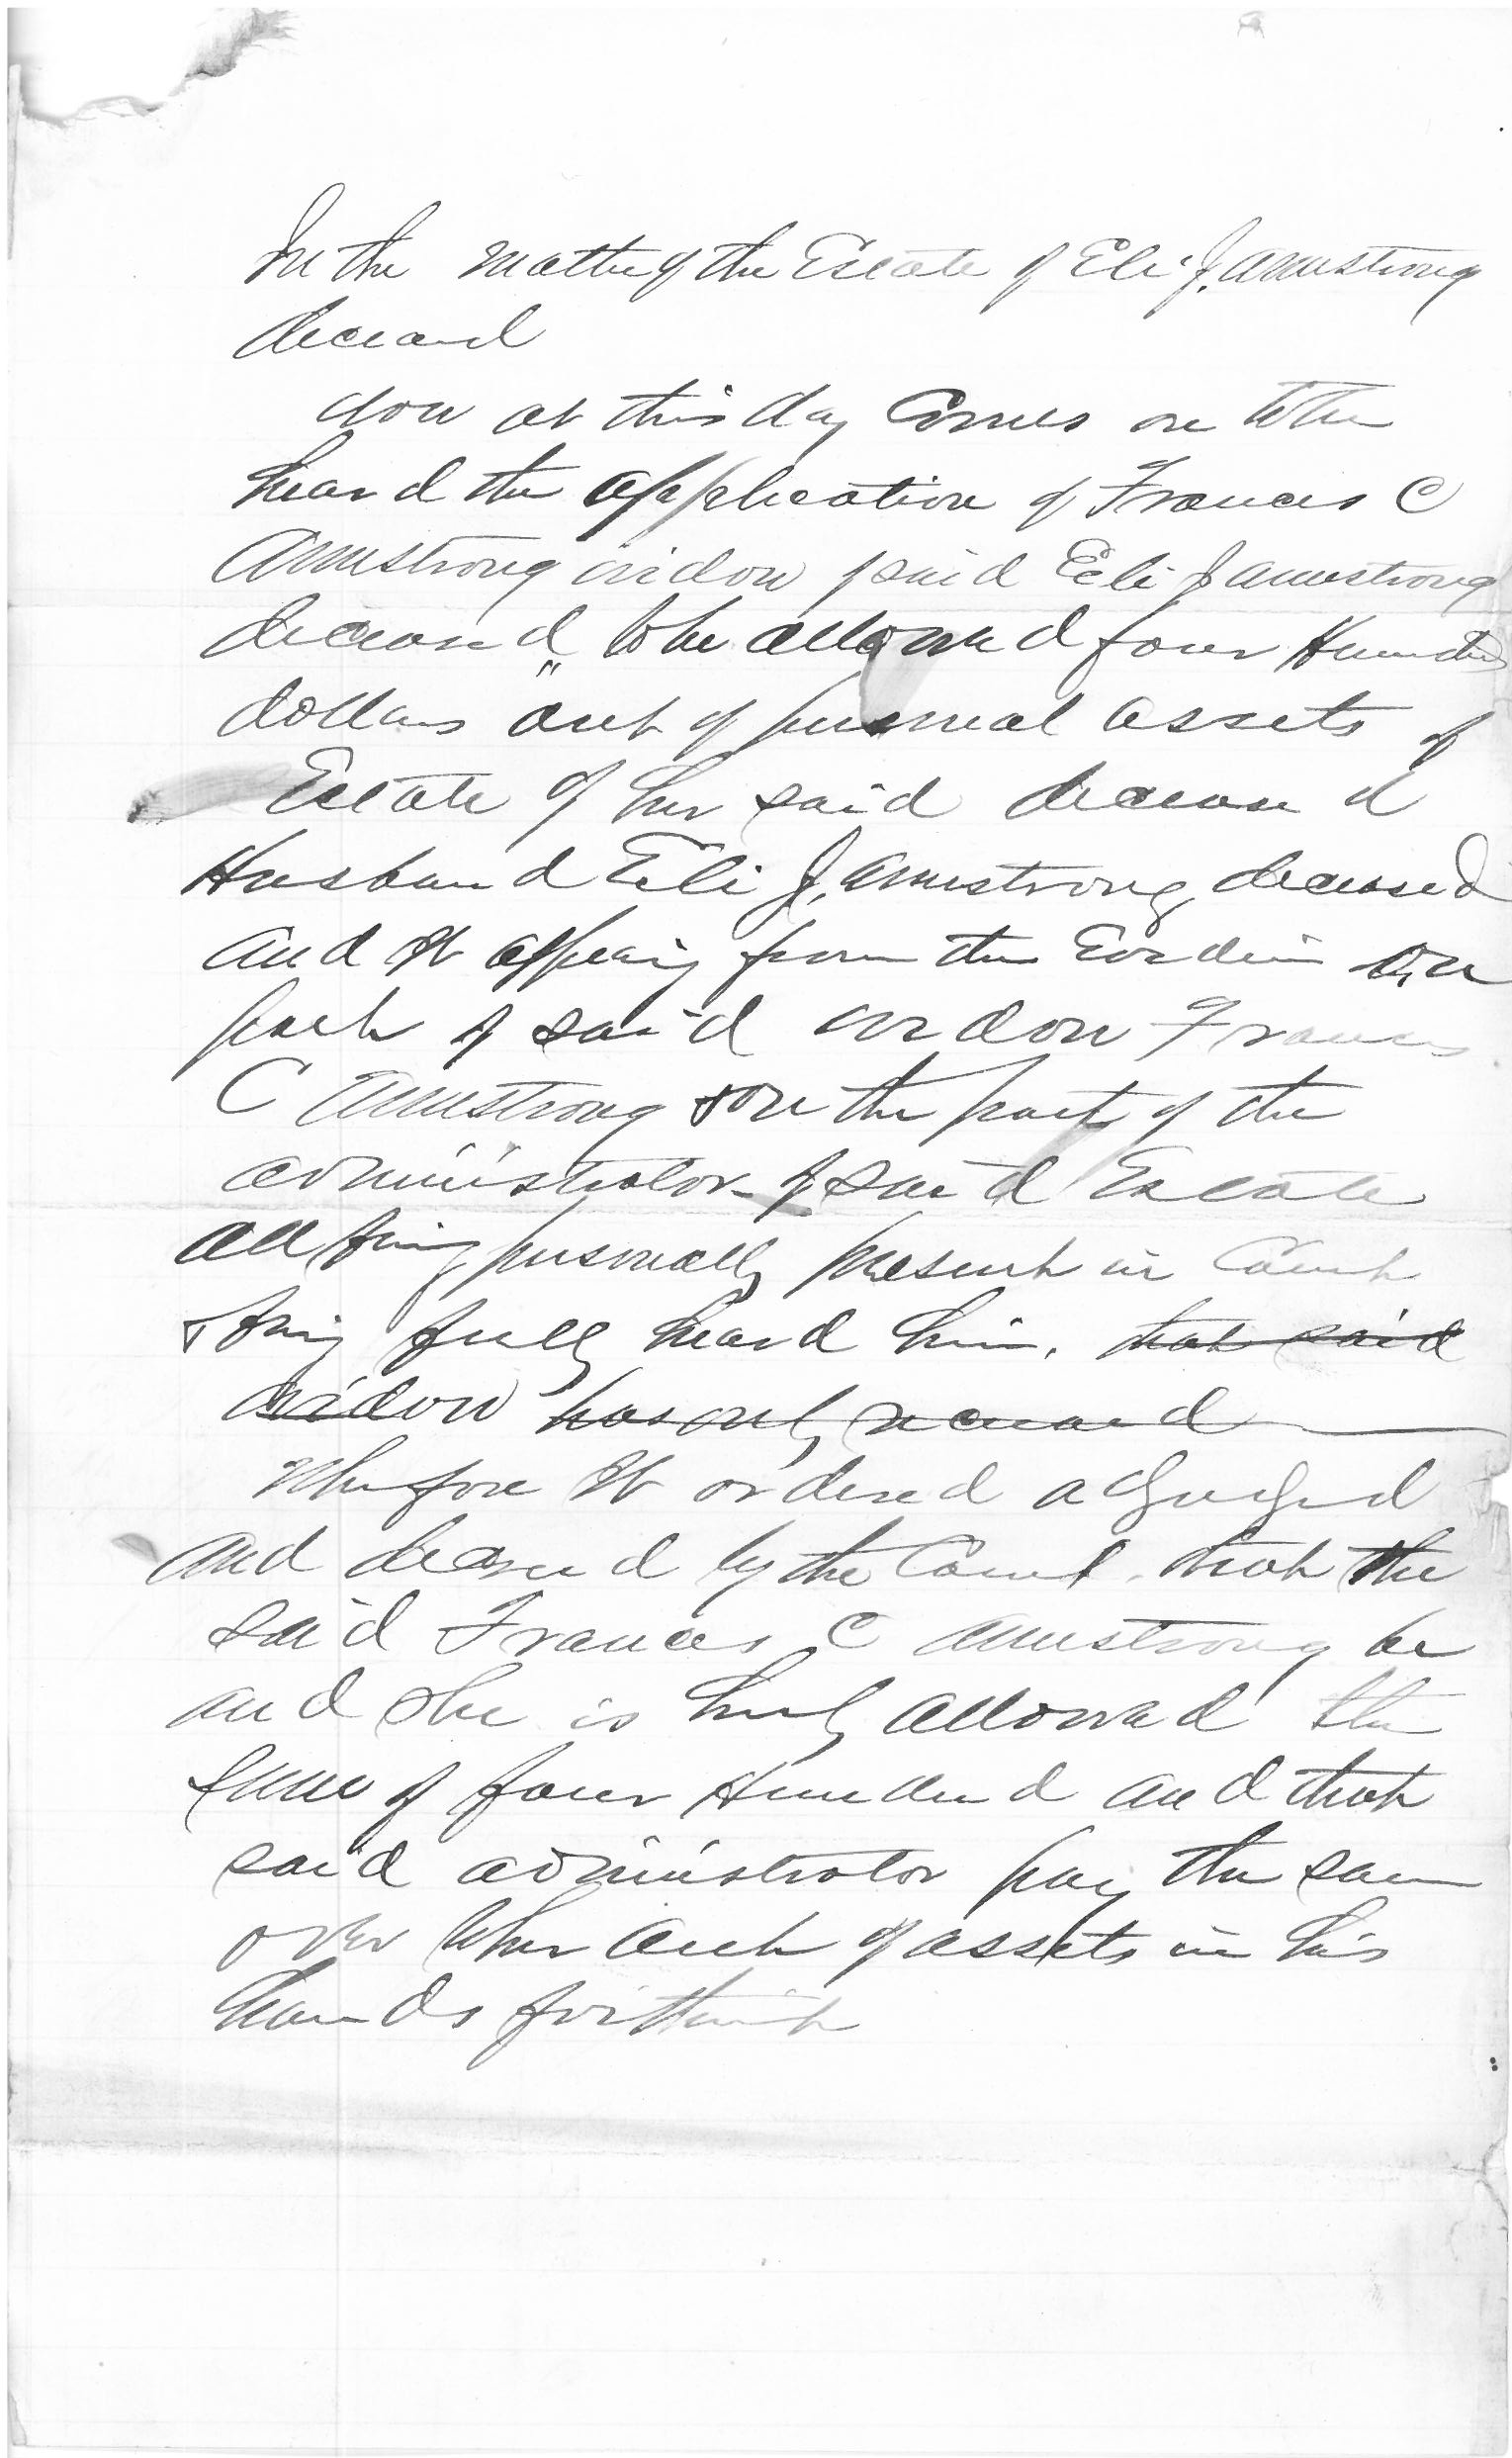 In the matter of the Estate of Eli J. Armstrong
deceased
Now at this day Comes on to be
heard the application of Frances C
Armstrong widow of said Eli J Armstrong
deceased to be allowed four Hundred
dollars out of personal assets of
Estate of her said deceased
Husband Eli J. Armstrong deceased
and it appearing from the Evidence on
part of said widow Frances
C Armstrong & on the part of the
administrator of said Estate
all being personally present in Court
& being fully heard. that said
widow has only received
Wherefore it ordered adjudged
and decreed by the Court that the
said Frances C Armstrong be
and she is hereby allowed the
sum of four Hundred and that
said administrator pay the same
over to her out of assets in his
hands forthwith